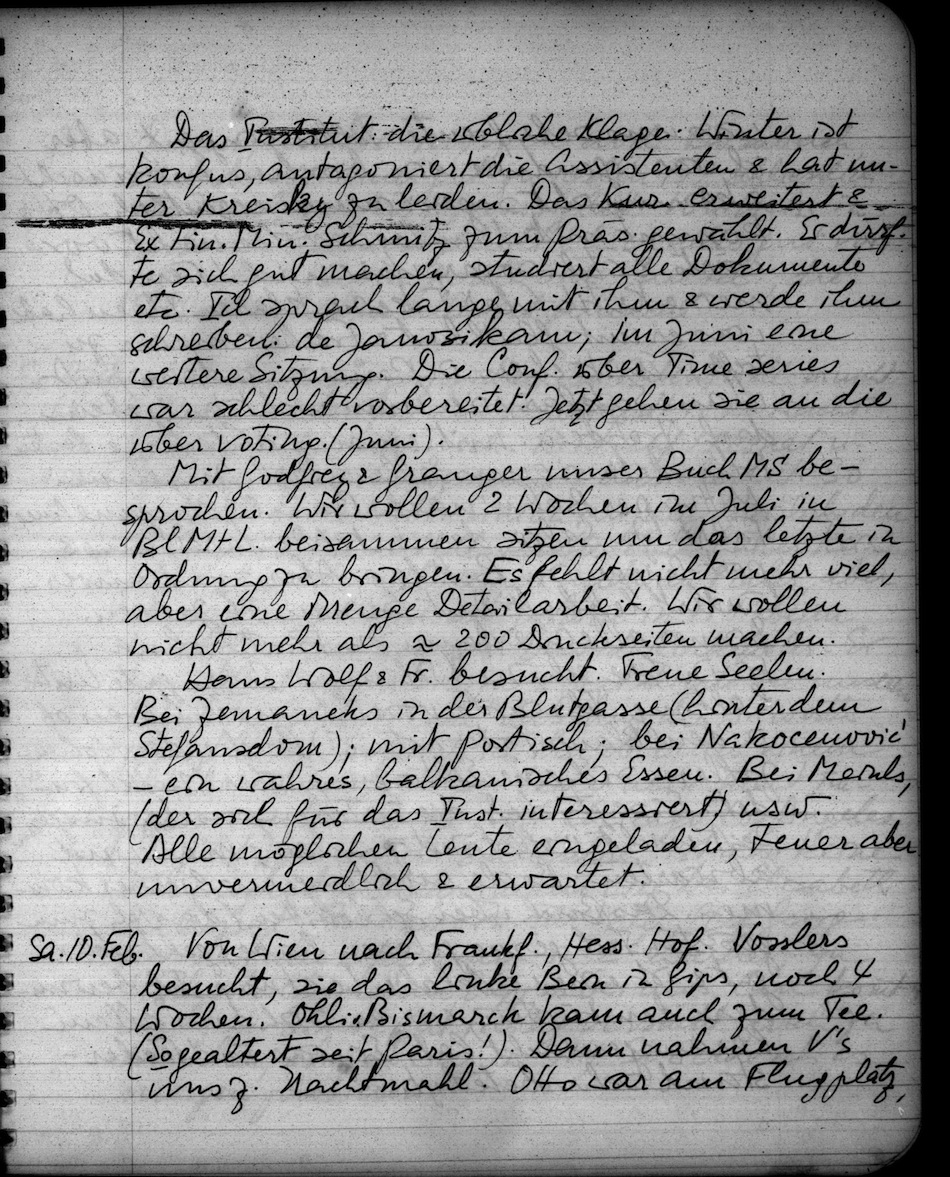 Das Institut: die übliche Klage. Winter ist
konfus, antagoniert die Assistenten & hat un-
ter Kreisky zu leiden. Das Kur. erweitert &
Ex Fin. Min. Schmitz zum Präs. gewählt. Er dürf-
te sich gut machen, studiert alle Dokumente
etc. Ich sprach lange mit ihm & werde ihm
schreiben. de Janosi kam; im Juni eine
weitere Sitzung. Die Conf. über Time series
war schlecht vorbereitet. Jetzt gehen sie an die
über voting. (Juni).
Mit Godfrey & Granger unser Buch MS be-
sprochen. Wir wollen 2 Wochen im Juli in
Bl M+L. beisammen sitzen um das letzte in
Ordnung zu bringen. Es fehlt nicht mehr viel,
aber eine Menge Detailarbeit. Wir wollen
nicht mehr als ≈ 200 Druckseiten machen.
Hans Wolf & Fr. besucht. Treue Seelen.
Bei Zemaneks in der Blutgasse (hinter dem
Stefansdom); mit Portisch; bei Nakocenović
– ein wahres, balkanisches Essen. Bei Meinls,
(der sich für das Inst. interessiert) usw.
Alle möglichen Leute eingeladen, Feuer aber
unvermeidlich & erwartet.
Sa. 10. Feb. Von Wien nach Frankf., Hess. Hof. Vosslers
besucht, sie das linke Bein in Gips, noch 4
Wochen. Bismarck kam auch zum Tee.
(So gealtert seit Paris!). Dann nahmen V's
uns z. Nachtmahl. Otto war am Flugplatz,